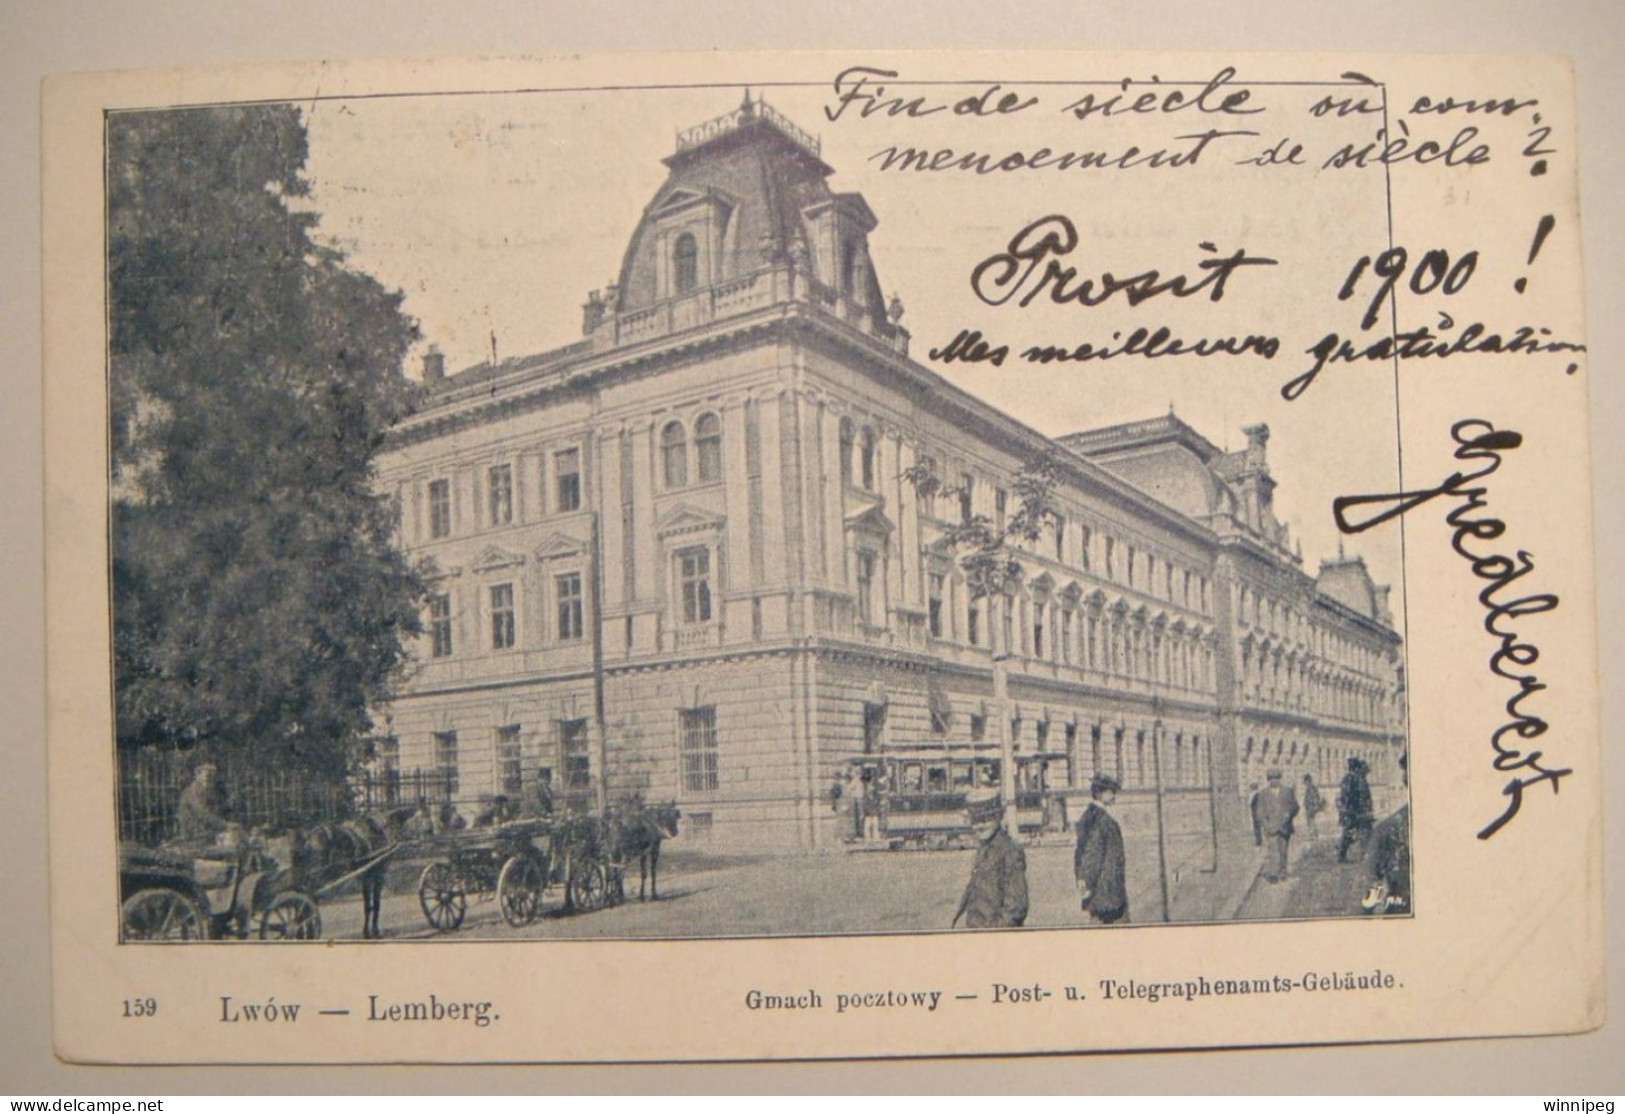 Fin de siècle où com-
mencement de siècle?
Prosit 1900!
Mes meilleurs gratulation.
159 Lwów — Lemberg.
Gmach pocztowy — Post- u. Telegraphenamts-Gebäude.
delcampe.net
winnipeg